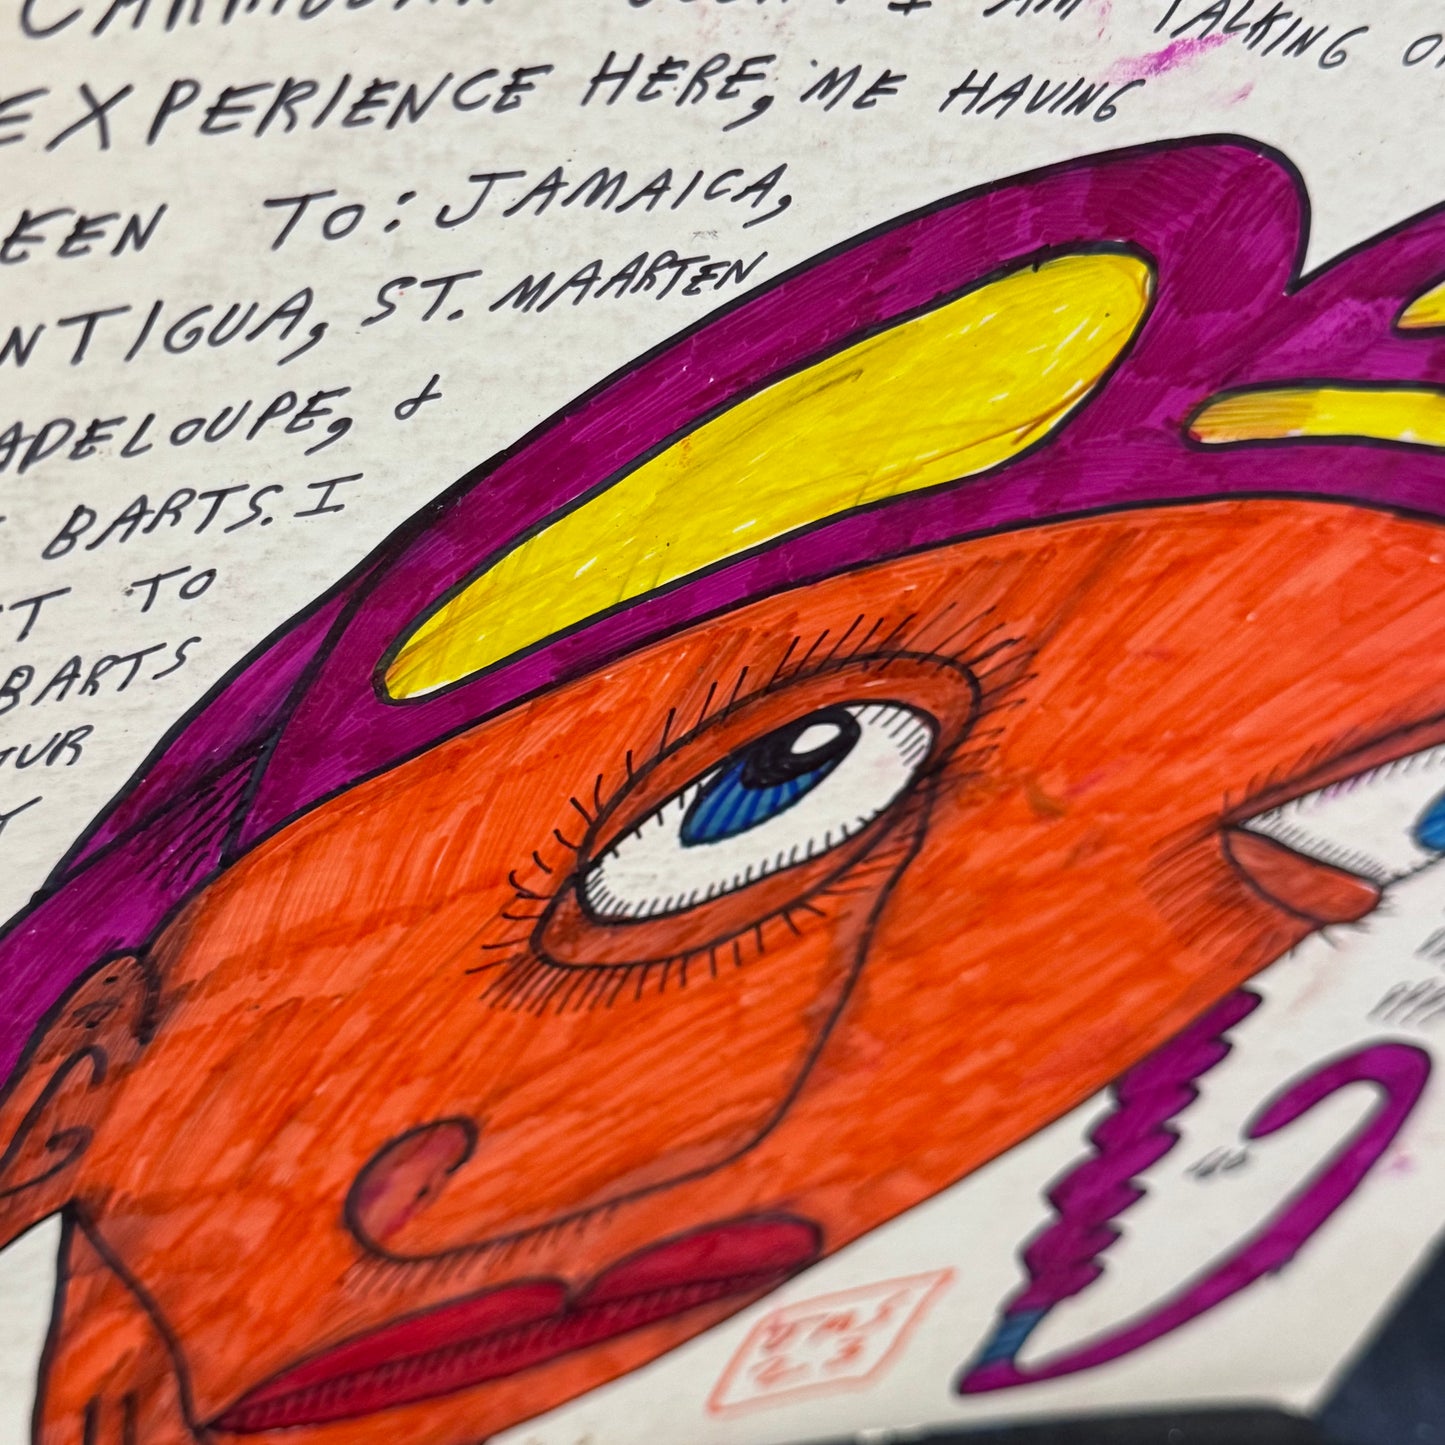 I AM TALKING
EXPERIENCE HERE, ME HAVING
EEN TO: JAMAICA,
NTIGUA, ST. MAARTEN
ADELOUPE, &
BARTS. I
T TO
BARTS
TUR